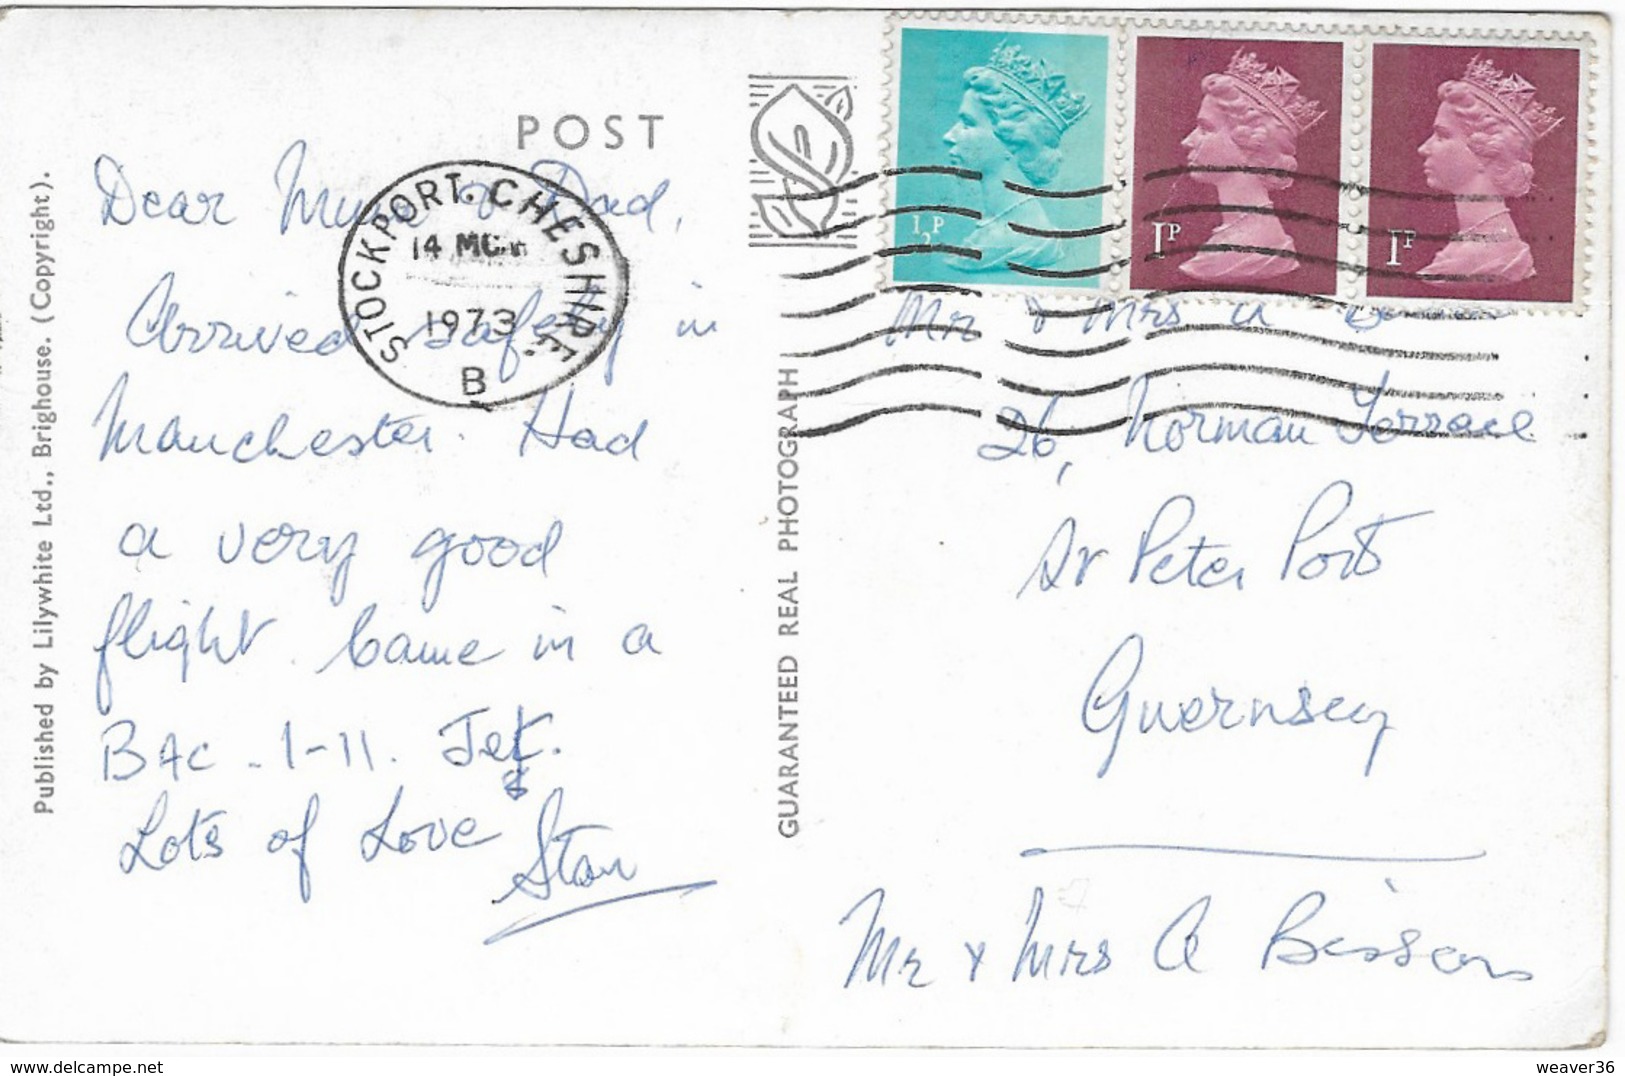 POST
Dear Mum & Dad,
Arrived safely in
Manchester. Had
a very good
flight. Came in a
BAC-1-11. Jet.
Lots of Love
Stan
Published by Lilywhite Ltd., Brighouse. (Copyright).
GUARANTEED REAL PHOTOGRAPH
STOCKPORT. CHESHIRE.
14
1973
B
½P
1P
1P
Mr & Mrs A
26, Norman Terrace
St Peter Port
Guernsey
Mr & Mrs A Bisson
delcampe.net
weaver36